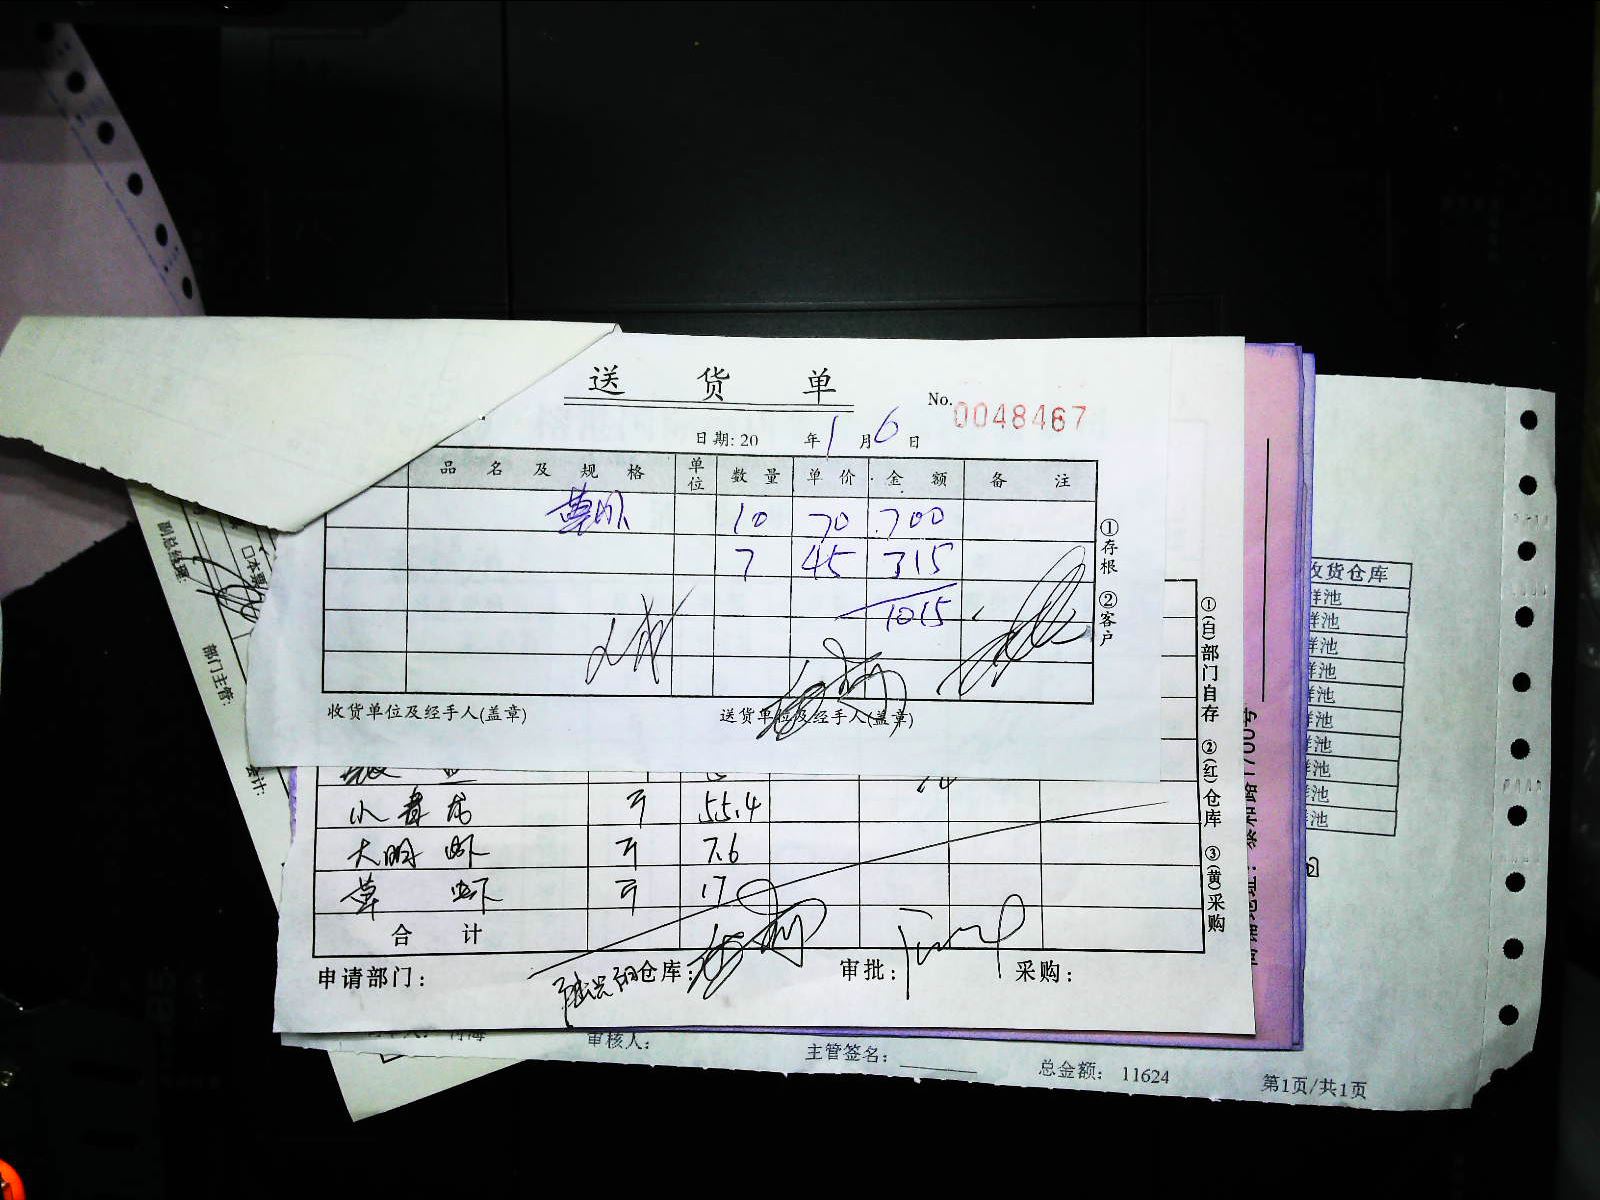 送货单
No. 0048467
日期: 20 年 1 月 6 日
品名及规格 单位 数量 单价 金额 备注
草虾 10 70 700
7 45 315
1015
①存根 ②客户
收货单位及经手人(盖章) 送货单位及经手人(盖章)
小青龙 斤 55.4
大明虾 斤 7.6
草虾 斤 17
合计
申请部门: 仓库: 审批: 采购:
①(白)部门自存 ②(红)仓库 ③(黄)采购
收货仓库
鲜池
鲜池
鲜池
鲜池
鲜池
鲜池
鲜池
鲜池
鲜池
鲜池
副总经理:
口本票
部门主管:
审核人:
主管签名:
总金额: 11624
第1页/共1页